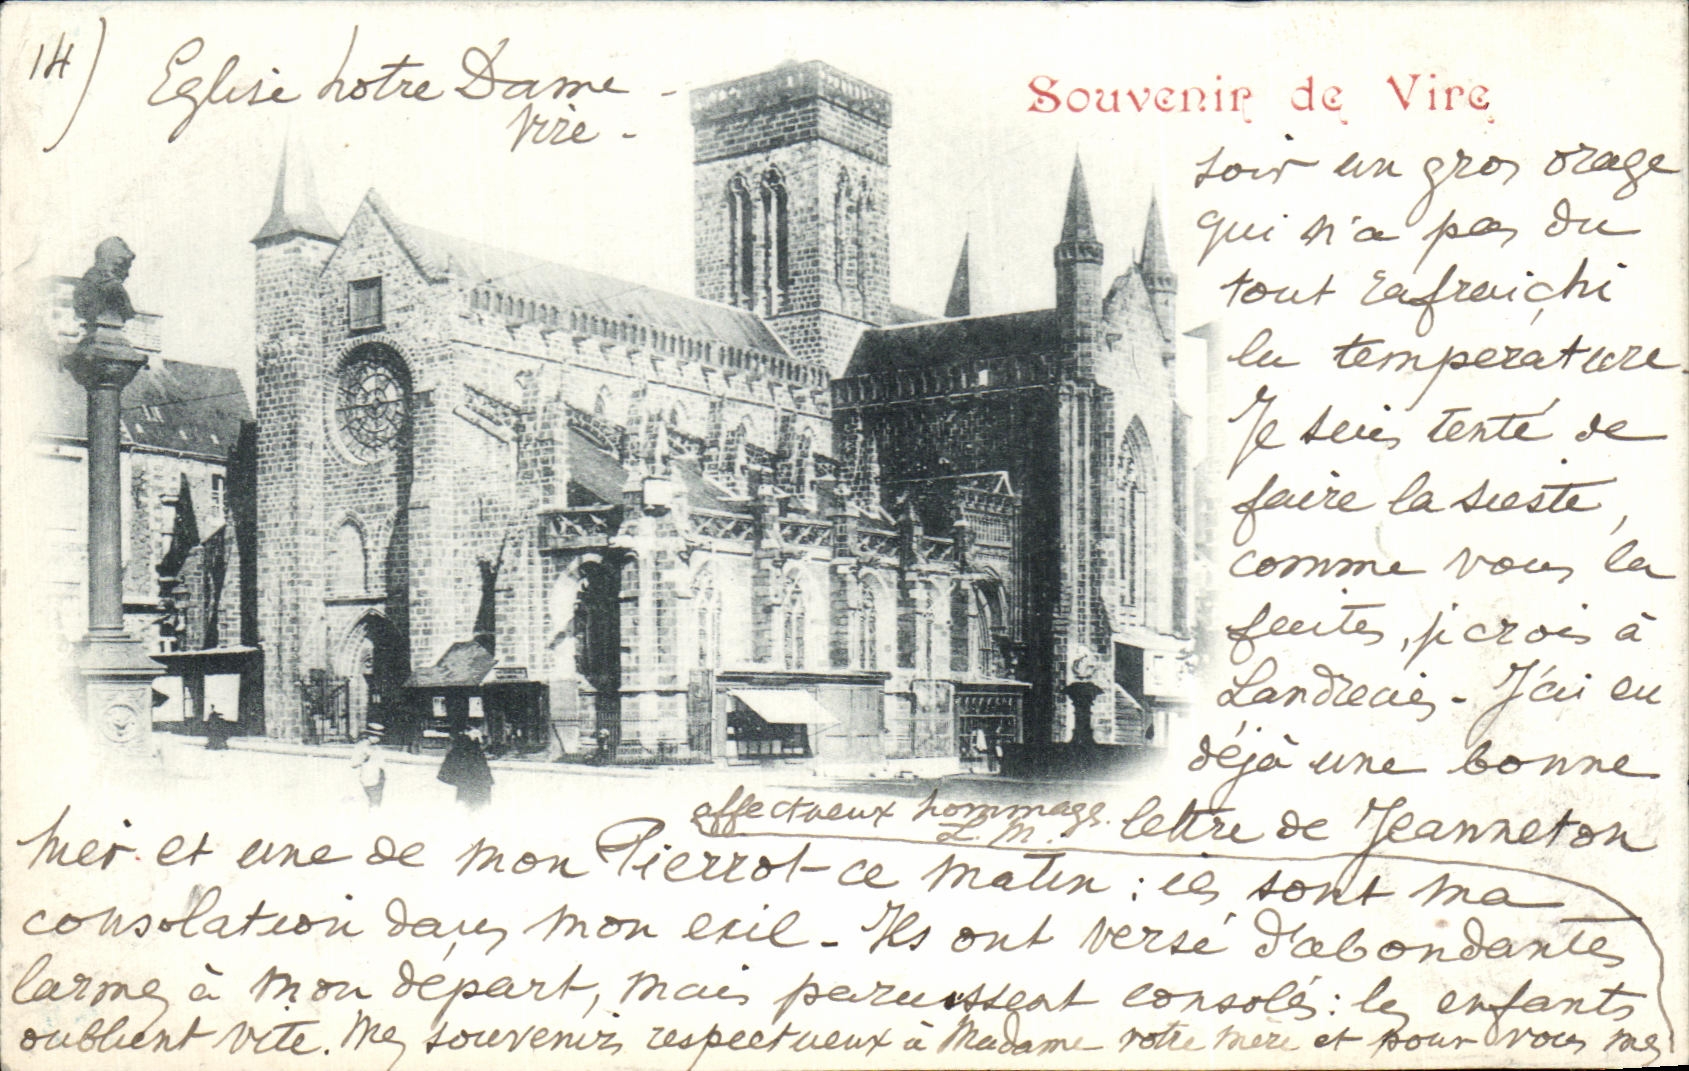 14)
Eglise Notre Dame -
Vire -
Souvenir de Vire
soir un gros orage
qui n'a pas du
tout rafraichi
la température.
Je suis tenté de
faire la sieste,
comme vous la
faites, je crois à
Landrecies - J'ai eu
déjà une bonne
lettre de Jeanneton
hier et une de mon Pierrot ce matin : ils sont ma
consolation dans mon exil - Ils ont versé d'abondantes
larmes à mon départ, mais paraissent consolés : les enfants
oublient vite. Mes souvenirs respectueux à Madame votre mère et pour vous mes
affectueux hommages.
L. M.